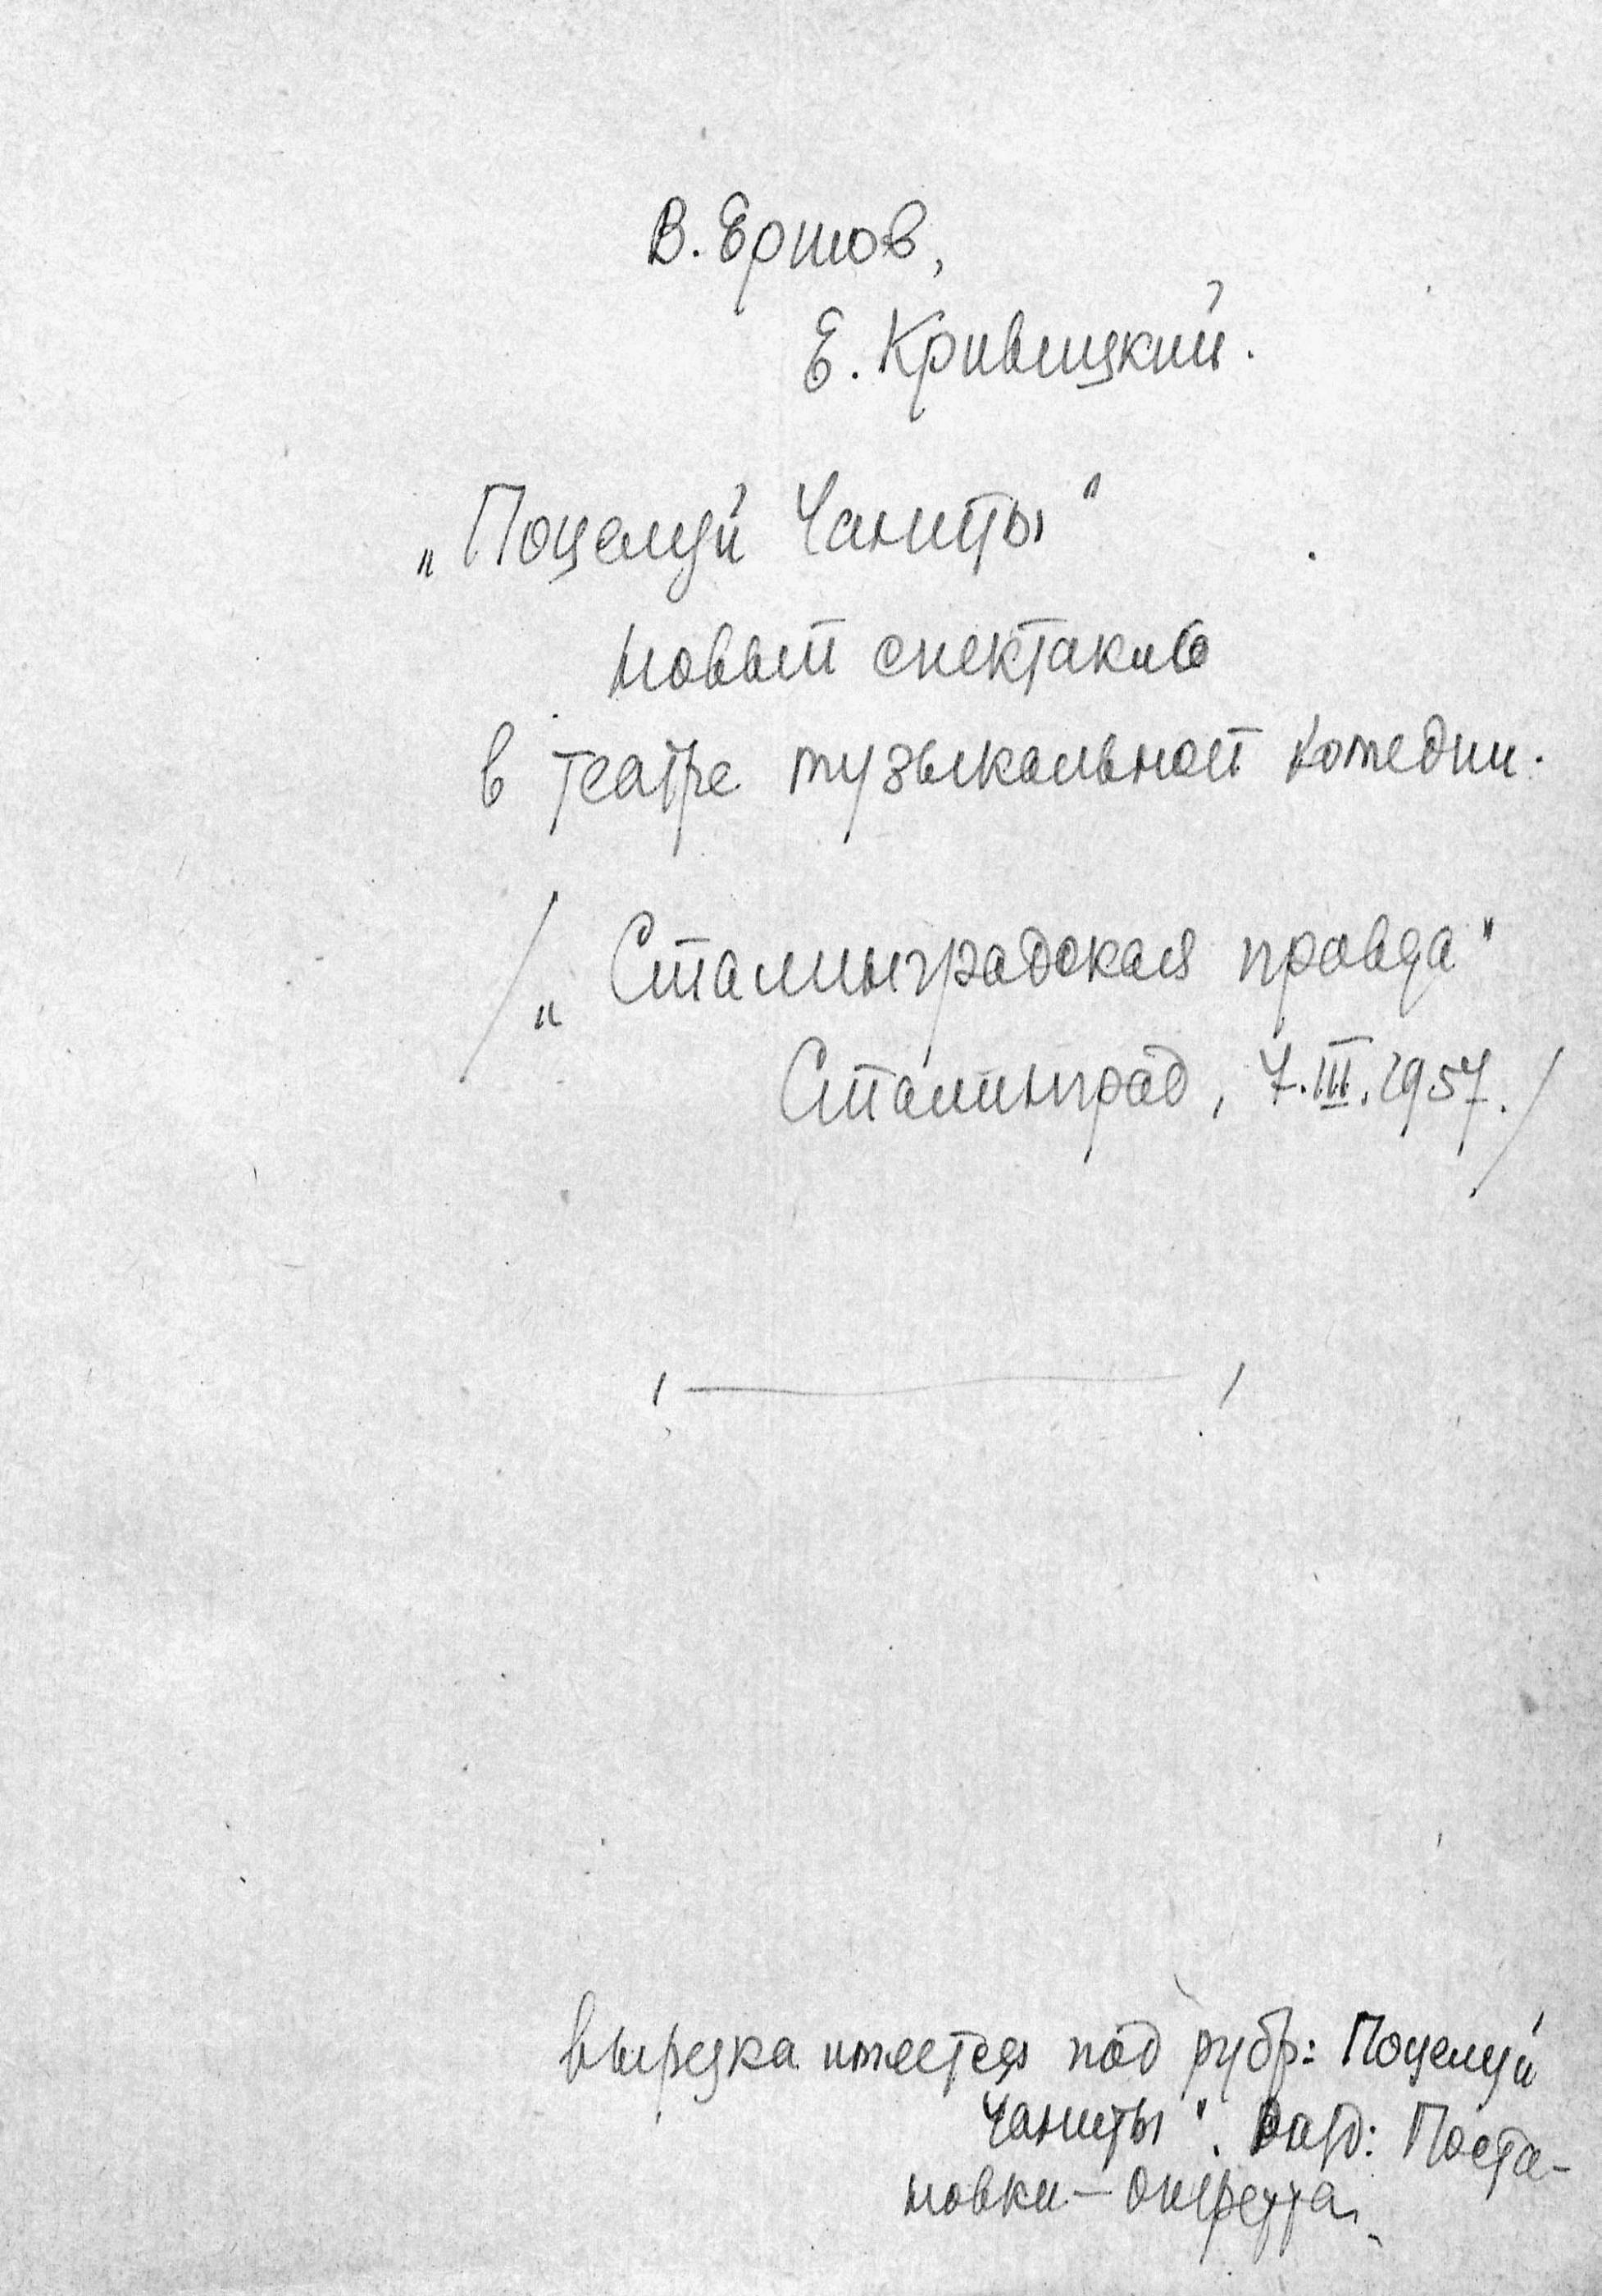 В. Ершов,
Е. Кривицкий.
„Поцелуй Чаниты"
новый спектакль
в театре музыкальной комедии.
/„Сталинградская правда"
Сталинград, 7.III.1957./
вырезка имеется под рубр: Поцелуй
Чаниты".  Поста-
новки – Оперетта.